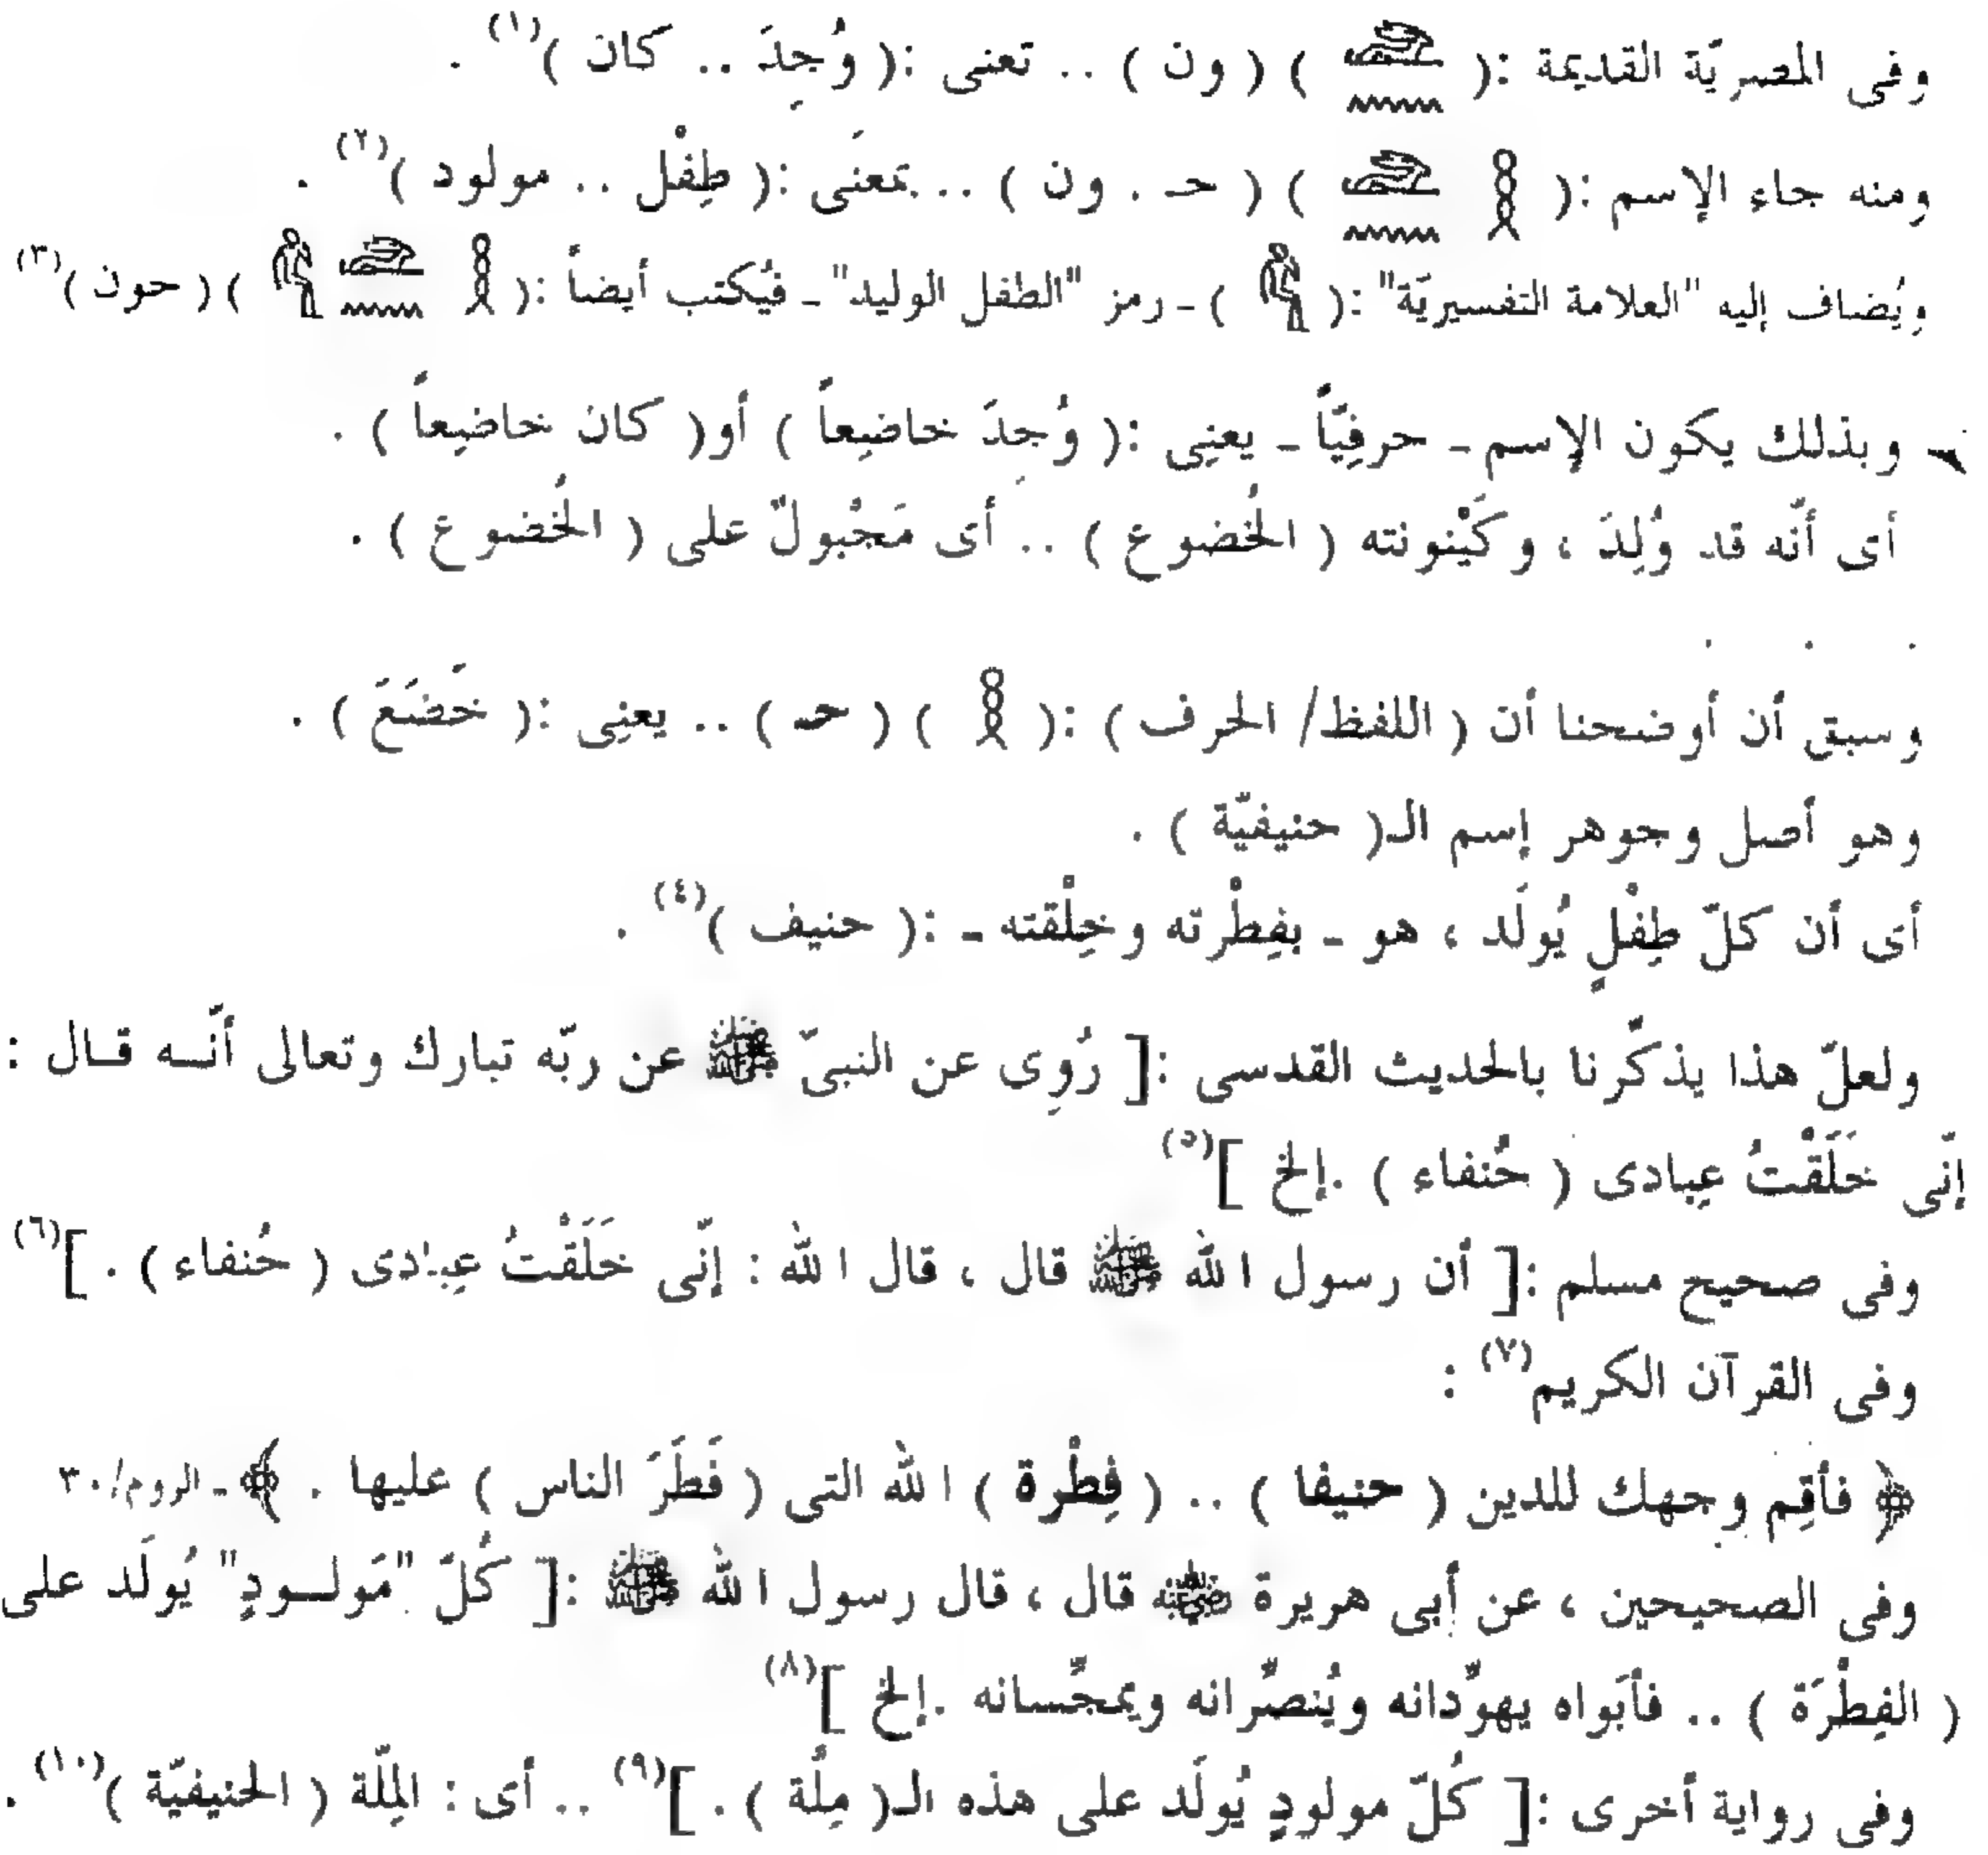 وفى المصريّة القديمة :( 𓃹𓈖 ) ( ون ) .. تعنى :( وُجِدَ .. كان )(١) .
ومنه جاء الإسم :( 𓎛𓃹𓈖 ) ( حـ . ون ) .. بمعنَى :( طِفْل .. مولود )(٢) .
ويُضاف إليه "العلامة التفسيريّة" :( 𓀔 ) ـ رمز "الطفل الوليد" ـ فيُكتب أيضاً :( 𓎛𓃹𓈖𓀔 ) ( حون )(٣)
وبذلك يكون الإسم ـ حرفِيّاً ـ يعنِى :( وُجِدَ خاضِعاً ) أو( كان خاضِعاً ) .
أى أنّه قد وُلِدَ ، وكَيْنونته ( الخُضوع ) .. أى مَجْبولٌ على ( الخُضوع ) .
. . .
وسبق أن أوضحنا أن ( اللفظ/ الحرف ) :( 𓎛 ) ( حـ ) .. يعنِى :( خَضَعَ ) .
وهو أصل وجوهر إسم الـ( حنيفيّة ) .
أى أن كلّ طِفْلٍ يُولَد ، هو ـ بفِطْرته وخِلْقته ـ :( حنيف )(٤) .
ولعلّ هذا يذكّرنا بالحديث القدسى :[ رُوِى عن النبىّ ﷺ عن ربّه تبارك وتعالى أنّـه قـال :
إنّى خَلَقْتُ عِبادى ( حُنفاء ) .إلخ ](٥)
وفى صحيح مسلم :[ أن رسول الله ﷺ قال ، قال الله : إنّى خَلَقْتُ عِبادى ( حُنفاء ) . ](٦)
وفى القرآن الكريم(٧) :
﴿ فأقِم وجهك للدين ( حنيفا ) .. ( فِطْرة ) الله التى ( فَطَرَ الناس ) عليها . ﴾ ـ الروم/٣٠
وفى الصحيحين ، عن أبى هريرة رضي الله عنه قال ، قال رسول الله ﷺ :[ كُلّ "مَولـودٍ" يُولَد على
( الفِطْرَة ) .. فأبَواه يهوِّدانه ويُنصِّرانه ويمجِّسانه .إلخ ](٨)
وفى رواية أخرى :[ كُلّ مولودٍ يُولَد على هذه الـ( مِلَّة ) . ](٩) .. أى : المِلّة ( الحنيفيّة )(١٠) .